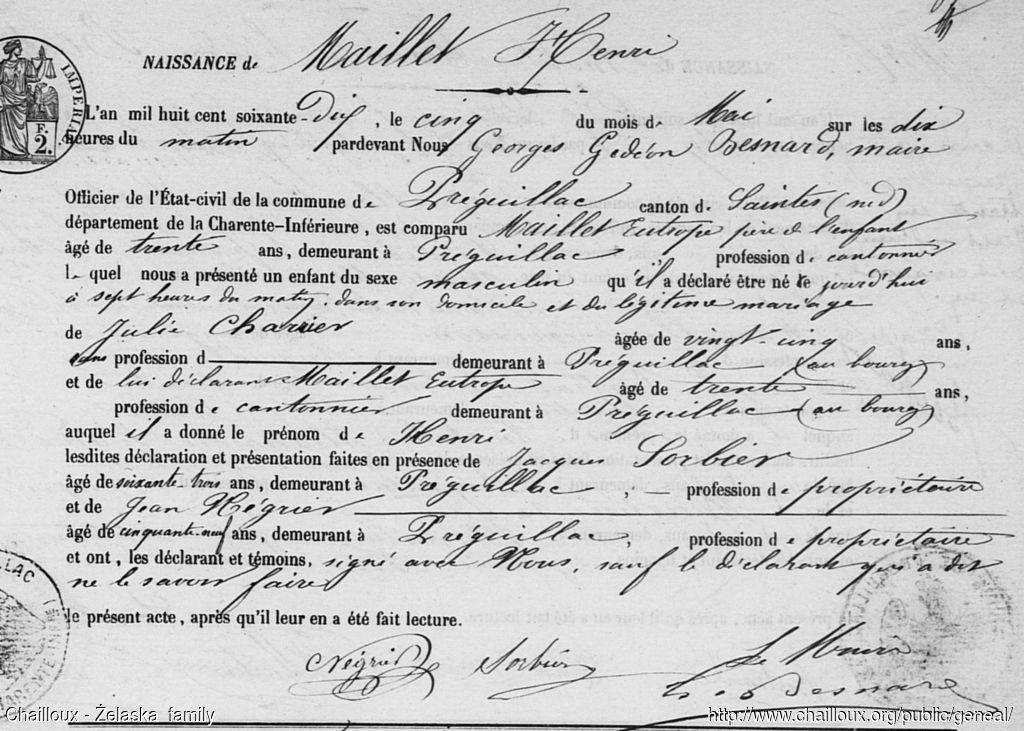 NAISSANCE de Maillet Henri
IMPERIAL
F.
2.
L'an mil huit cent soixante-Dix, le cinq du mois de Mai sur les dix
heures du matin pardevant Nous Georges Gédéon Besnard, maire
Officier de l'État-civil de la commune de Préguillac canton de Saintes (sud)
département de la Charente-Inférieure, est comparu Maillet Eutrope père de l'enfant
âgé de trente ans, demeurant à Préguillac profession de cantonnier
lequel nous a présenté un enfant du sexe masculin qu'il a déclaré être né le jourd'hui
à sept heures du matin, dans son domicile et du légitime mariage
de Julie Charrier âgée de vingt-cinq ans,
sans profession d demeurant à Préguillac (au bourg)
et de lui déclarant Maillet Eutrope âgé de trente ans,
profession de cantonnier demeurant à Préguillac (au bourg)
auquel il a donné le prénom de Henri
lesdites déclaration et présentation faites en présence de Jacques Sorbier
âgé de soixante-trois ans, demeurant à Préguillac, profession de propriétaire
et de Jean Négrier
âgé de cinquante-neuf ans, demeurant à Préguillac, profession de propriétaire
et ont, les déclarant et témoins, signé avec Nous, sauf le déclarant qui a dit
ne le savoir faire
le présent acte, après qu'il leur en a été fait lecture.
Négrier Sorbier Le Maire
G. Besnard
Chailloux - Żelaska family http://www.chailloux.org/public/geneal/